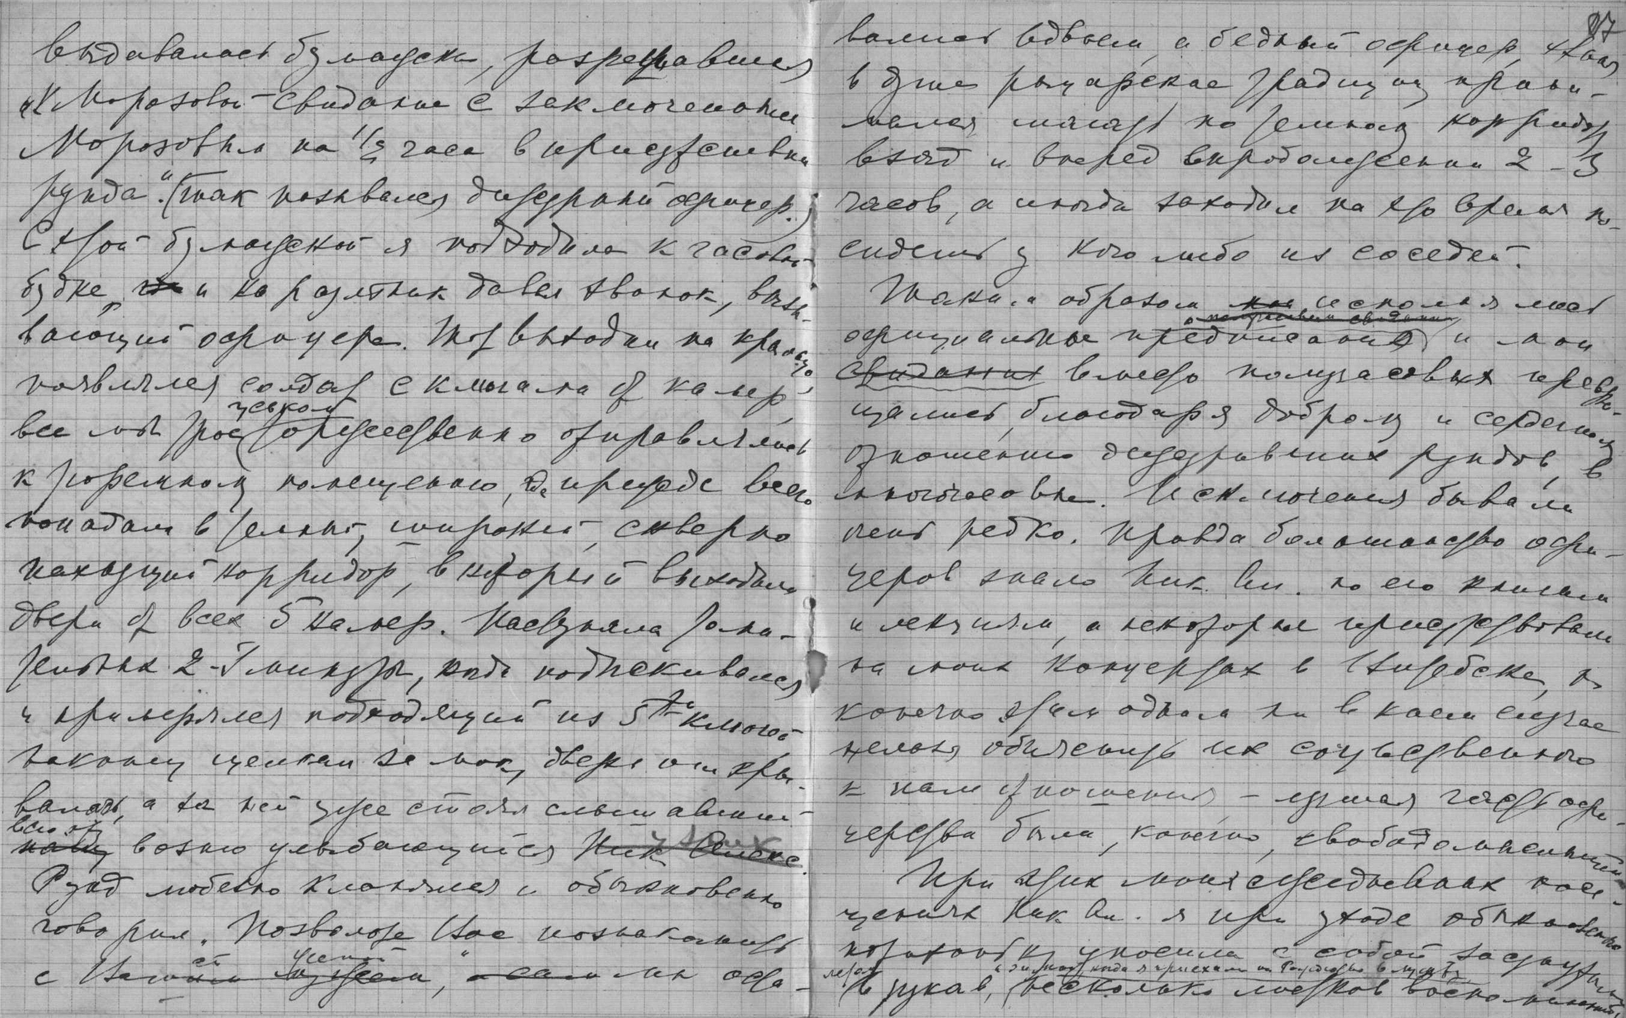 выдавалась бумажка, разрешавшая
"К Морозовой свидание с заключенным
Морозовым на 1/2 часа в присутствии
рунда". (Так назывался дежурный офицер.)
С этой бумажкой я подходила к часовой
будке и на развал давал звонок, вызы-
вающий офицера. Тот выходил на крыльцо,
появлялся солдат с ключами от камер,
все мы трое гуськом торжественно отправлялись
к тюремному помещению, где прежде всего
попадали в темный, широкий, скверно
пахнущий корридор, в который выходили
двери от всех 5 камер. Наступала томи-
тельная 2-3 минуты, когда подыскивался
и примерялся подходящий из 5ти ключей
наконец щелкал замок, дверь откры-
валась, а за ней уже стоял слышавший
всю эту
возню улыбающийся узник
Рунд любезно кланялся и обыкновенно
говорил. Позвольте Вас познакомить
с Вашей ", оста-
27
вались вдвоем, а бедный офицер, храня
в душе рыцарские традиции прини-
мался шагать по темному корридору
взад и вперед в продолжении 2-3
часов, а иногда заходил на это время по-
сидеть у кого либо из соседей.
Таким образом исполнялись
официальные предписания и мои
свидания вместо получасовых превра-
щались, благодаря доброму и сердечному
отношению дежуривших рундов, в
многочасовые. Исключения бывали
очень редко. Правда большинство офи-
церов знало Ник. Ал. по его книгам
и лекциям, а некоторые присутствовали
на моих концертах в Витебске, но
конечно этим одним ни в коем случае
нельзя объяснить их сочувственного
к нам отношения – лучшая часть офи-
церства была, конечно, свободомыслящей.
При этих моих ежедневных посе-
щениях Ник. Ал. я при уходе обыкновенно
потихоньку уносила с собой засунутыми
летом зимой, когда я приехала
в рукав, несколько листков воспоминаний,